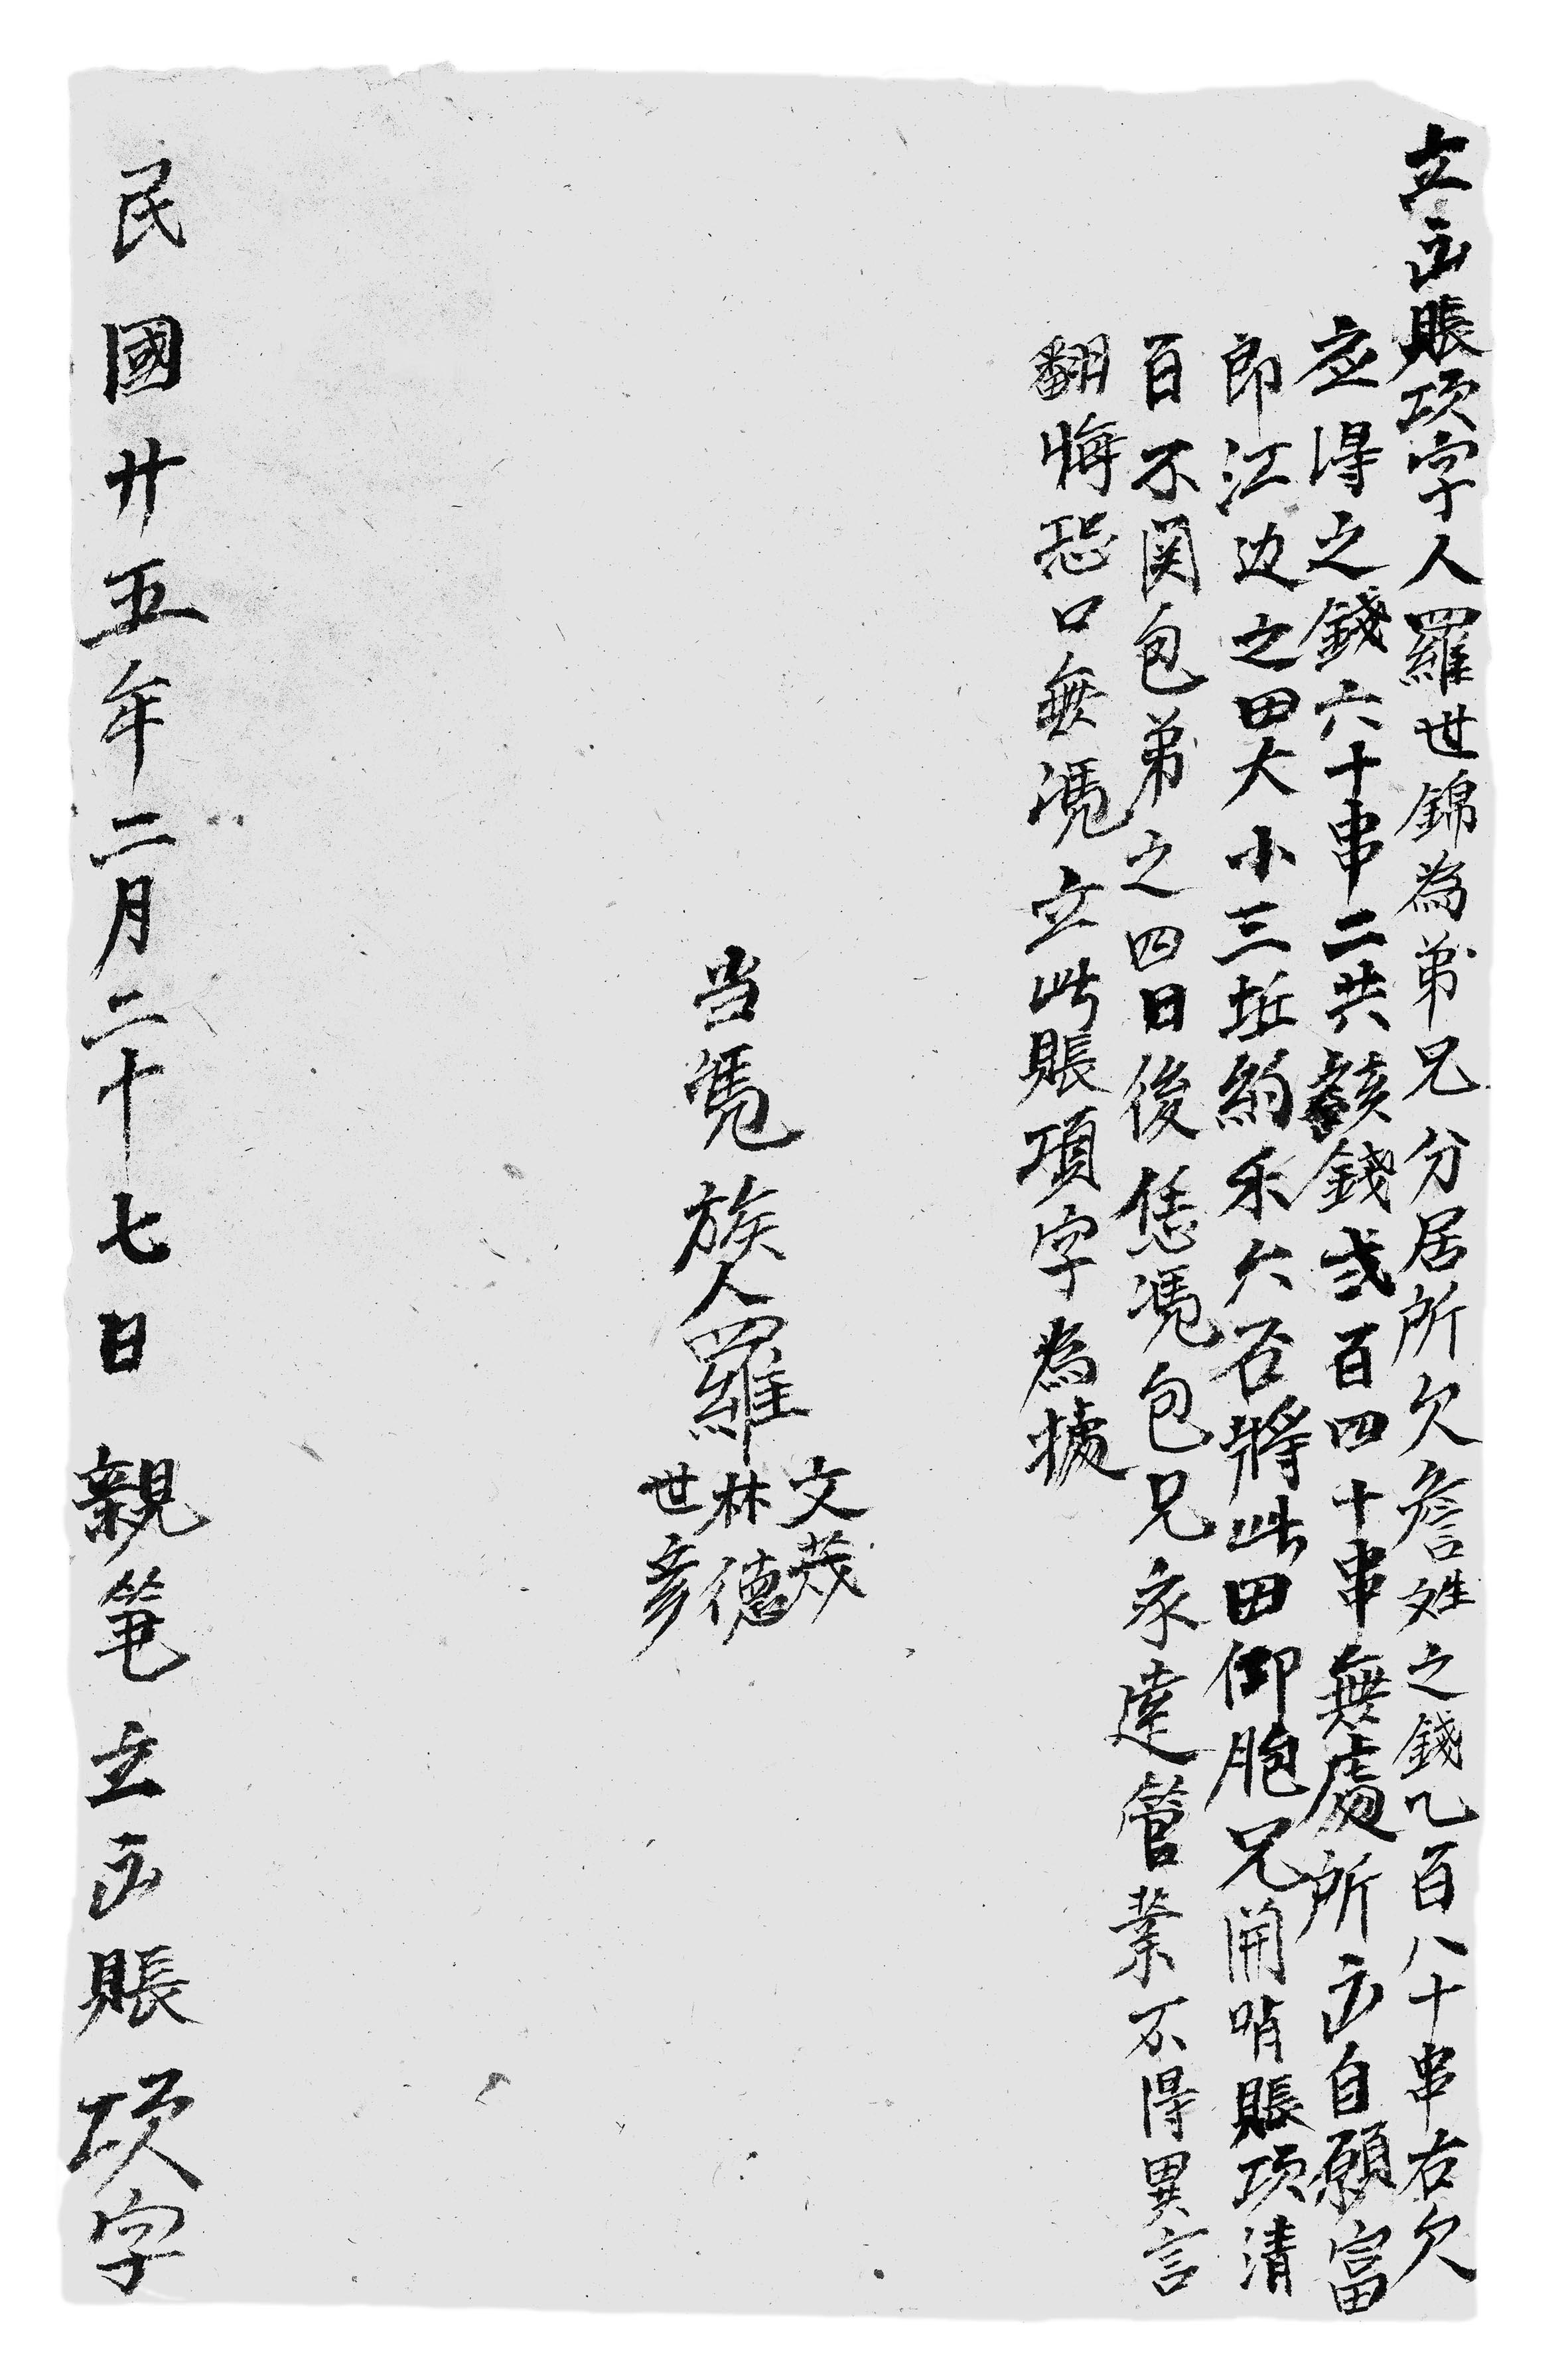 立出賬項字人羅世錦為弟兄分居所欠詹姓之錢乙百八十串右欠
应得之錢六十串二共該錢弍百四十串無處所出自願富
郎江边之田大小三坵約禾六百將此田仰胞兄開哨賬項清
百不関包弟之四日後恁憑包兄永遠管業不得異言
翻悔恐口無憑立此賬項字為據
当憑族人羅
文茂
林德
世彦
民國廿五年二月二十七日親筆立出賬項字